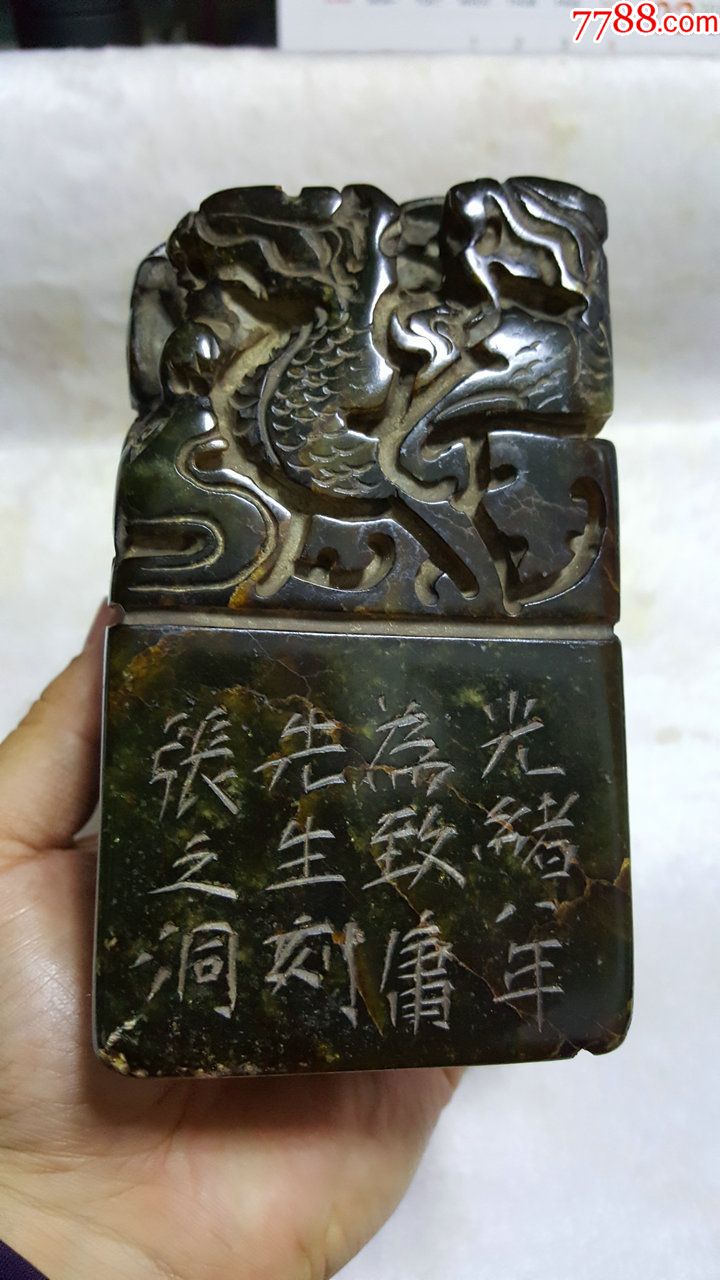 7788.com
光緒八年
為致庸
先生刻
張之洞